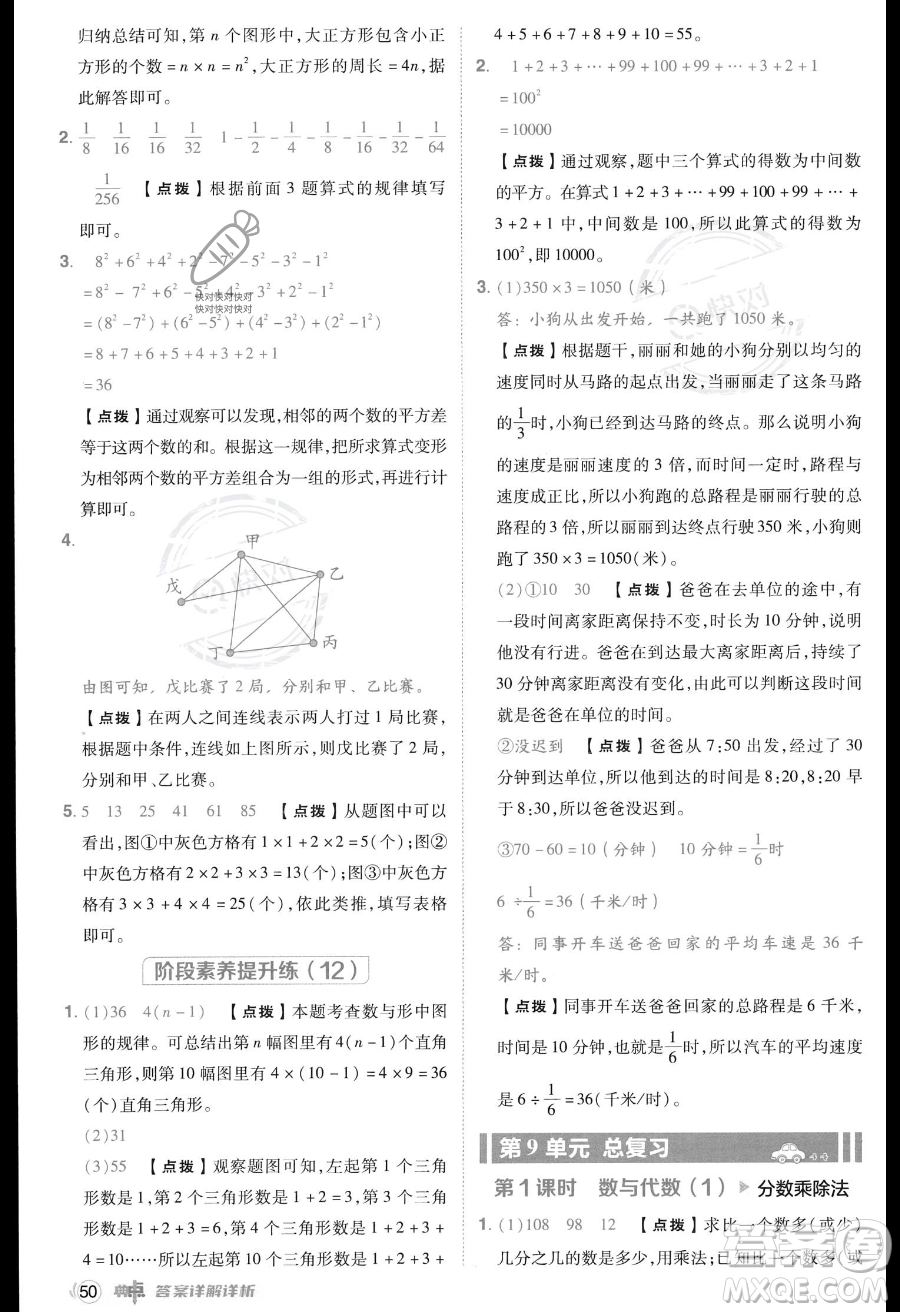 归纳总结可知，第 n 个图形中，大正方形包含小正
方形的个数 = n × n = n²，大正方形的周长 = 4n，据
此解答即可。
2. 1/8 1/16 1/16 1/32 1 - 1/2 - 1/4 - 1/8 - 1/16 - 1/32 - 1/64
1/256 【点拨】根据前面 3 题算式的规律填写
即可。
3. 8² + 6² + 4² + 2² - 7² - 5² - 3² - 1²
= 8² - 7² + 6² - 5² + 4² - 3² + 2² - 1²
= (8² - 7²) + (6² - 5²) + (4² - 3²) + (2² - 1²)
= 8 + 7 + 6 + 5 + 4 + 3 + 2 + 1
= 36
快对快对快对
快对快对快对
【点拨】通过观察可以发现，相邻的两个数的平方差
等于这两个数的和。根据这一规律，把所求算式变形
为相邻两个数的平方差组合为一组的形式，再进行计
算即可。
4.
甲
乙
戊
丁
丙
由图可知，戊比赛了 2 局，分别和甲、乙比赛。
【点拨】在两人之间连线表示两人打过 1 局比赛，
根据题中条件，连线如上图所示，则戊比赛了 2 局，
分别和甲、乙比赛。
5. 5 13 25 41 61 85 【点拨】从题图中可以
看出，图①中灰色方格有 1 × 1 + 2 × 2 = 5(个)；图②
中灰色方格有 2 × 2 + 3 × 3 = 13(个)；图③中灰色方格有
3 × 3 + 4 × 4 = 25(个)，依此类推，填写表格
即可。
阶段素养提升练（12）
1. (1)36 4(n - 1) 【点拨】本题考查数与形中图
形的规律。可总结出第 n 幅图里有 4(n - 1)个直角
三角形，则第 10 幅图里有 4 × (10 - 1) = 4 × 9 = 36
(个)直角三角形。
(2)31
(3)55 【点拨】观察题图可知，最下层起始数字
是 1，总数是 1；最下层起始数字是 2，总数是 1 +
2 = 3；最下层起始数字是 3，总数是 1 + 2 + 3 = 6；
最下层起始数字是 4，总数是 1 + 2 + 3 +
4 = 10……所以最下层起始数字是 10，总数是 1 + 2 + 3 +
4 + 5 + 6 + 7 + 8 + 9 + 10 = 55。
2. 1 + 2 + 3 + … + 99 + 100 + 99 + … + 3 + 2 + 1
= 100²
= 10000
【点拨】通过观察，题中三个算式的得数为中间数
的平方。在算式 1 + 2 + 3 + … + 99 + 100 + 99 + … +
3 + 2 + 1 中，中间数是 100，所以此算式的得数为
100²，即 10000。
3. (1)350 × 3 = 1050（米）
答：小狗从出发开始，一共跑了 1050 米。
快对
【点拨】根据题干，丽丽和她的小狗分别以均匀的
速度同时从马路的起点出发，当丽丽走了这条马路
的 1/3 时，小狗已经到达马路的终点。那么说明小狗
的速度是丽丽速度的 3 倍，而时间一定时，路程与
速度成正比，所以小狗跑的总路程是丽丽行驶的总
路程的 3 倍，所以丽丽到达终点行驶 350 米，小狗则
跑了 350 × 3 = 1050(米)。
(2)①10 30 【点拨】爸爸在去单位的途中，有
一段时间离家距离保持不变，时长为 10 分钟，说明
他没有行进。爸爸在达到最大离家距离之后有
30 分钟离家距离没有变化，由此可以判断这段时间
就是爸爸在单位的时间。
②没迟到 【点拨】爸爸从 7:50 出发，经过了 30
分钟到达单位，所以到达的时间是 8:20，8:20 早
于 8:30，所以爸爸没迟到。
③70 - 60 = 10（分钟） 10 分钟 = 1/6 时
6 ÷ 1/6 = 36（千米/时）
答：同事开车送爸爸回家的平均车速是 36 千
米/时。
【点拨】同事开车送爸爸回家的总路程是 6 千米，
时间是 10 分钟，也就是 1/6 时，所以汽车的平均速度
是 6 ÷ 1/6 = 36(千米/时)。
第 9 单元 总复习
第 1 课时 数与代数（1） 分数乘除法
1. (1)108 98 12 【点拨】求比一个数多(或少)
几分之几的数是多少，用乘法；已知比一个数多(或
50 典中点 答案详解详析
答案圈
MXQE.COM